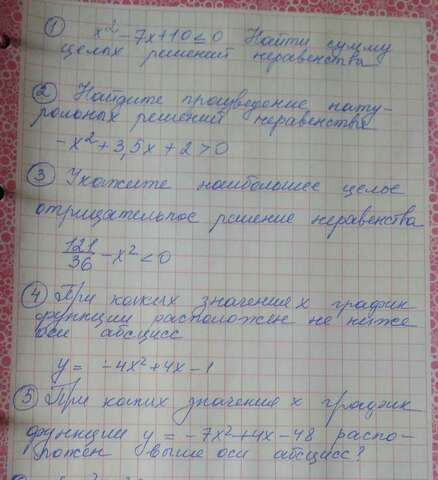 ① x² - 7x + 10 ≤ 0 Найти сумму
целых решений неравенства
② Найдите произведение нату-
ральных решений неравенства
- x² + 3,5x + 2 > 0
③ Укажите наибольшее целое
отрицательное решение неравенства
121/36 - x² < 0
④ При каких значениях график
функции расположен не ниже
оси абсцисс
y = -4x² + 4x - 1
⑤ При каких значения x график
функции y = -7x² + 4x - 48 распо-
ложен выше оси абсцисс?